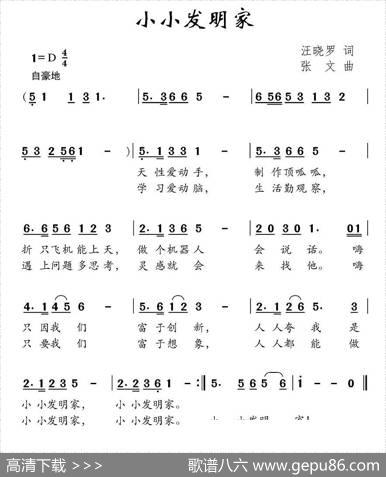 小小发明家
1=D 4/4
汪晓罗 词
自豪地
张 文 曲
(5 1 1 3 1. | 5. 3 6 6 5 - | 6 5 6 5 3 1 3 2
5 3 2 5 6 1 - - ) | 5. 1 3 3 1 - | 5. 3 6 6 5 -
天 性爱动手， 制 作顶呱呱，
学 习爱动脑， 生 活勤观察，
6. 6 5 6 1 2 3 | 2. 1 3 6 5 - | 2 0 3 0 1. 0 1
折 只飞机能上天， 做 个机器人 会 说 话。 嗨
遇 上问题多思考， 灵 感就会 来 找 他。 嗨
4. 1 4 5 6 | 5. 6 1 2 3 -
只 因我 们 富 于创 新， 人 人夸 我 是
只 要我 们 富 于想 象， 人 人都 能 做
2. 1 2 3 5 - | 2. 1 2 3 6 1 - :‖ 5. 3 6 5 | 5 6 5 6 | 1 - 0 0
小 小发明家， 小 小发明家。
小 小发明家， 小 小发明家。 小 小发明
高清下载 >>>
歌谱八六 www.gepu86.com